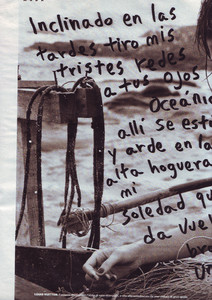 Inclinado en las
tardes tiro mis
tristes redes
a tus ojos
Oceáni
allí se esti
y arde en la
alta hoguera
mi
soledad qu
da vuel